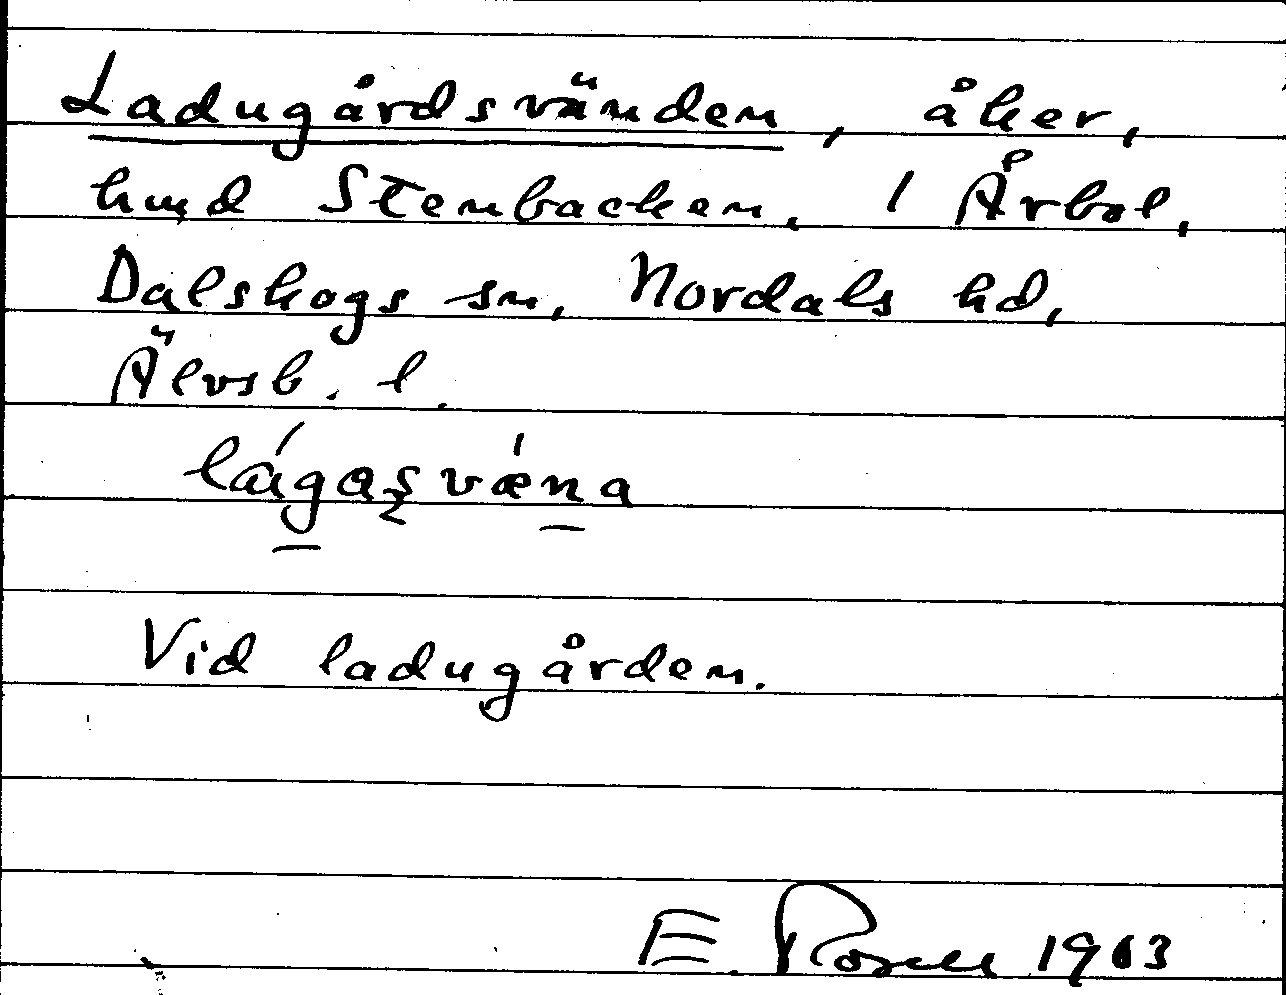 Ladugårdsvänden, åker,
hmd Stenbacken, 1 Årbol,
Dalskogs sn, Nordals hd,
Älvsb. l.
lágasvæ̀na
Vid ladugården.
E. Rosell 1963